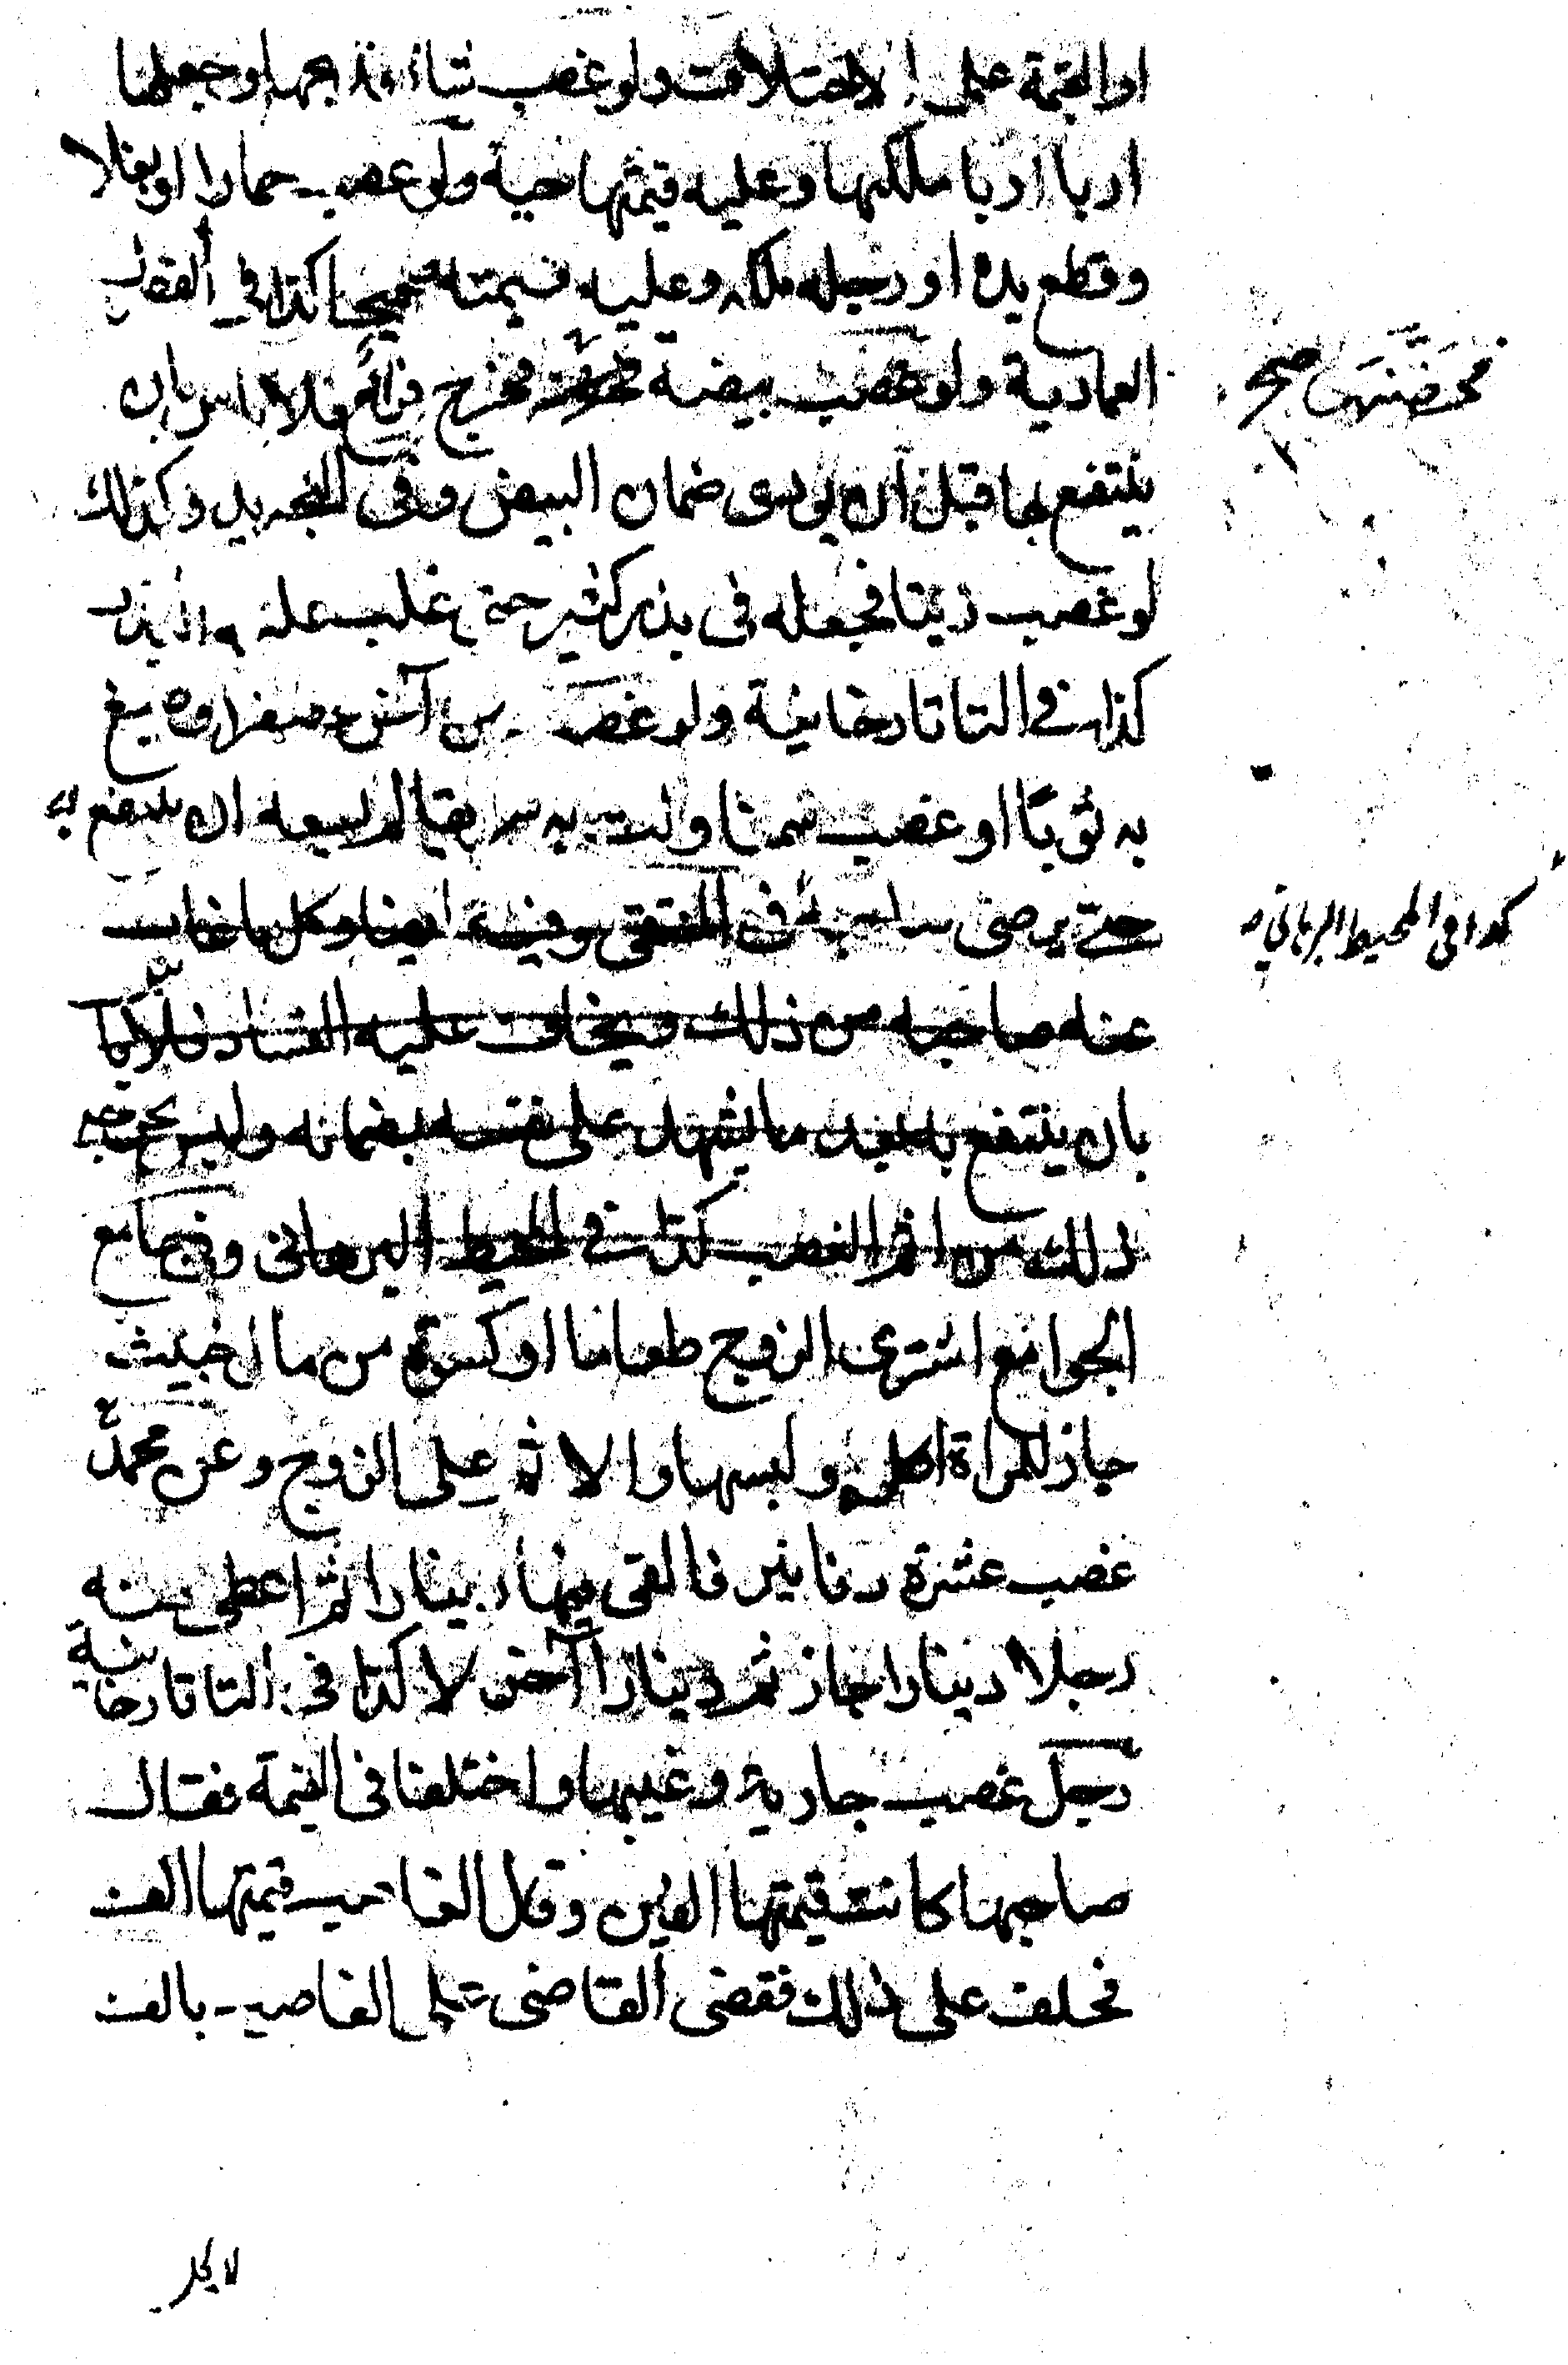 او القيمة على الاختلاف ولو غصب شاة فذبحها وجعلها
اربا اربا ملكها وعليه قيمتها حية ولو غصب حمارا او بغلا
وقطع يده او رجله ملكه وعليه قيمته صحيحا كذا في الفصول
العمادية ولو غصب بيضة فخرج فلا باس بان
فحضنتها صح
ينتفع بها قبل ان يودى ضمان البيض وفى التجريد وكذلك
لو غصب زيتا فجعله فى بذر كثير حتى غلب عليه البذر
كذا في التاتارخانية ولو غصب من آخر عصفرا وصبغ
به ثوبا او غصب سمنا ولت به سويقا لم يسعه ان ينتفع به
حتى يرضى صاحبه فى المنتقى وفيه ايضا وكل ما غاب
كذا في المحيط البرهاني
عنه صاحبه من ذلك ويخاف عليه الفساد فلا باس
بان ينتفع به بعد ما يشهد على نفسه بضمانه وليس يخرجه
ذلك من اثم الغصب كذا في المحيط البرهانى وفي جامع
الجوامع اشترى الزوج طعاما او كسوة من مال خبيث
جاز للمراة اكله ولبسها والاثم على الزوج وعن محمد
غصب عشرة دنانير فالقى فيها دينارا ثم اعطى منه
رجلا دينارا جاز ثم دينارا آخر لا كذا فى التاتارخانية
رجل غصب جارية وغيبها واختلفا فى القيمة فقال
صاحبها كانت قيمتها الفين وقال الغاصب قيمتها الف
فحلف على ذلك فقضى القاضى على الغاصب بالف
لا يحل